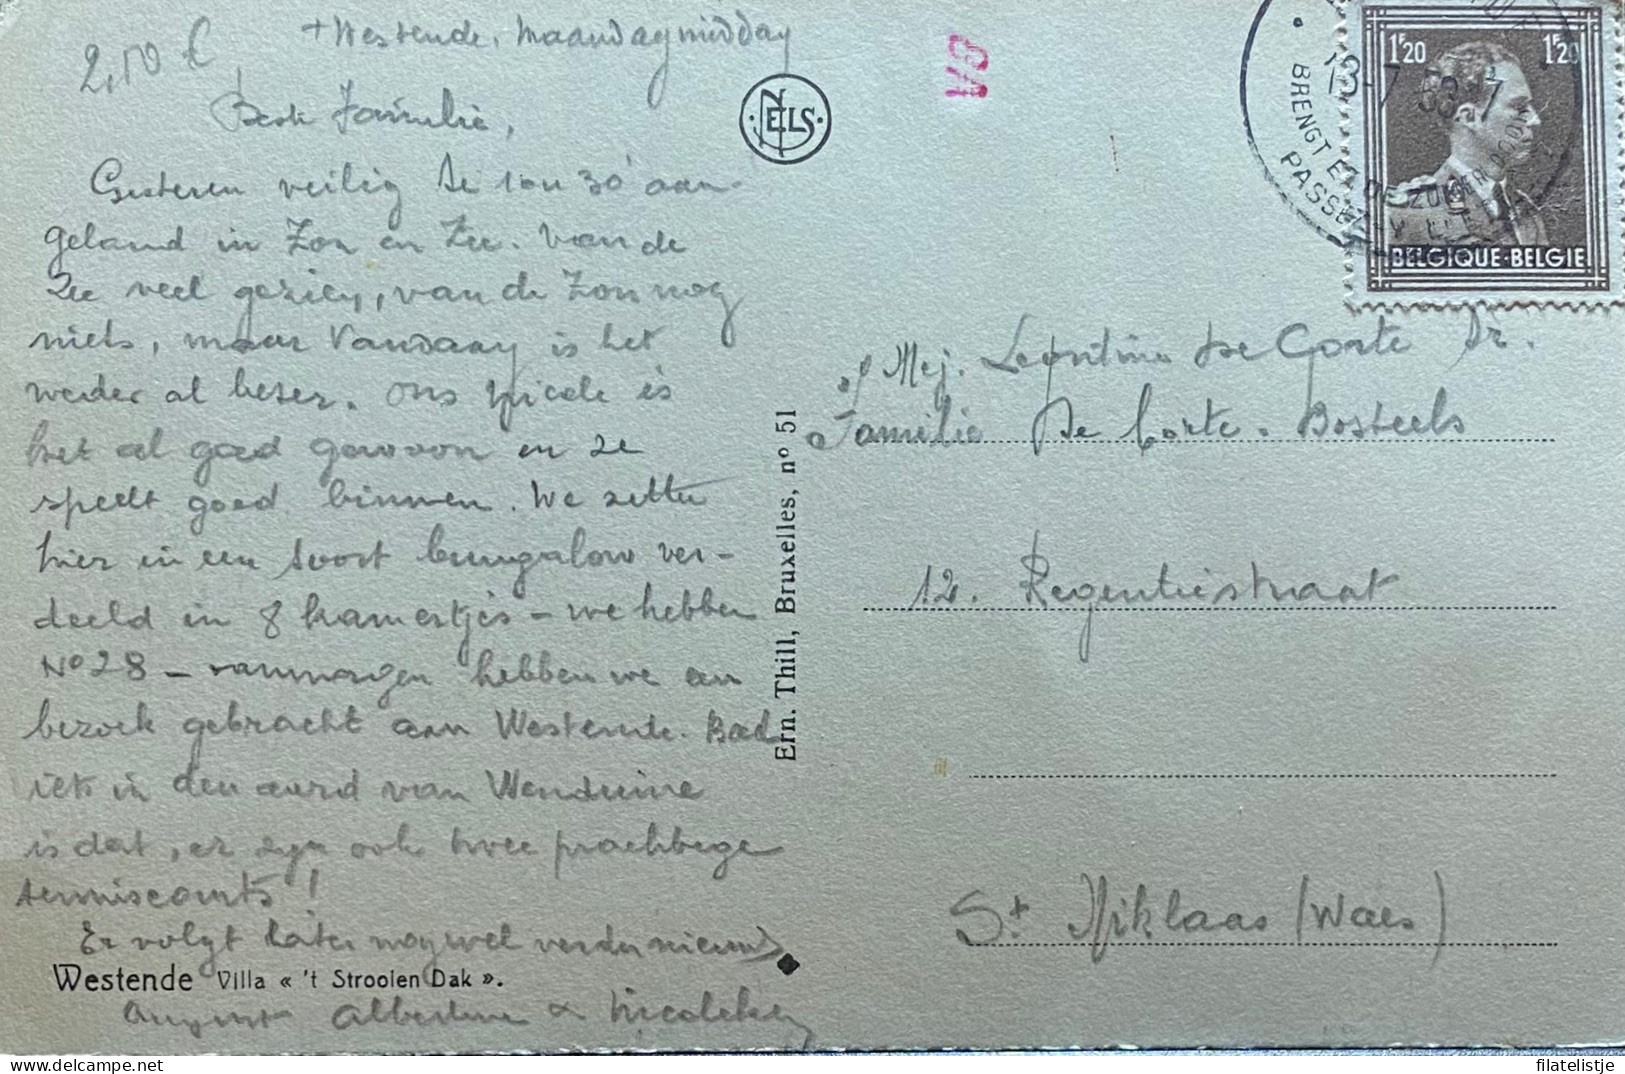 2,50 €
+ Westende, Maandagmiddag
Beste Familie,
Gisteren veilig te 10u 30' aan-
geland in Zon en Zee. Van de
Zee veel gezien, van de Zon nog
niets, maar Vandaag is het
weder al beter. Ons Nicole is
het al goed gewoon en ze
speelt goed binnen. We zitten
hier in een soort bungalow ver-
deeld in 8 kamertjes – we hebben
No 28 – vanmorgen hebben we een
bezoek gebracht aan Westende-Bad
iets in den aard van Wenduine
is dat, er zijn ook twee prachtige
tenniscourts!
Er volgt later nog wel verder nieuws
Westende Villa « 't Strooien Dak ».
August Albertine & Nicoleke
NELS
Ern. Thill, Bruxelles, nº 51
V8
13-7 53-7
BRENGT
PASSEZ
1F20 1F20
BELGIQUE·BELGIE
Mej. Leontine De Corte Dr.
Familie De Corte-Bosteels
12. Regentiestraat
St Niklaas (Waes)
filatelistje